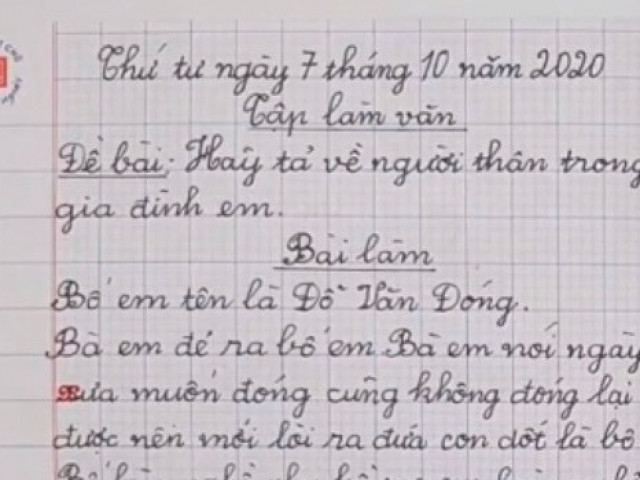 Thứ tư ngày 7 tháng 10 năm 2020
Tập làm văn
Đề bài: Hãy tả về người thân trong
gia đình em.
Bài làm
Bố em tên là Đỗ Văn Đóng.
Bà em đẻ ra bố em Bà em nói ngày
xưa muốn đóng cũng không đóng lại
được nên mới lòi ra đứa con dốt là bố